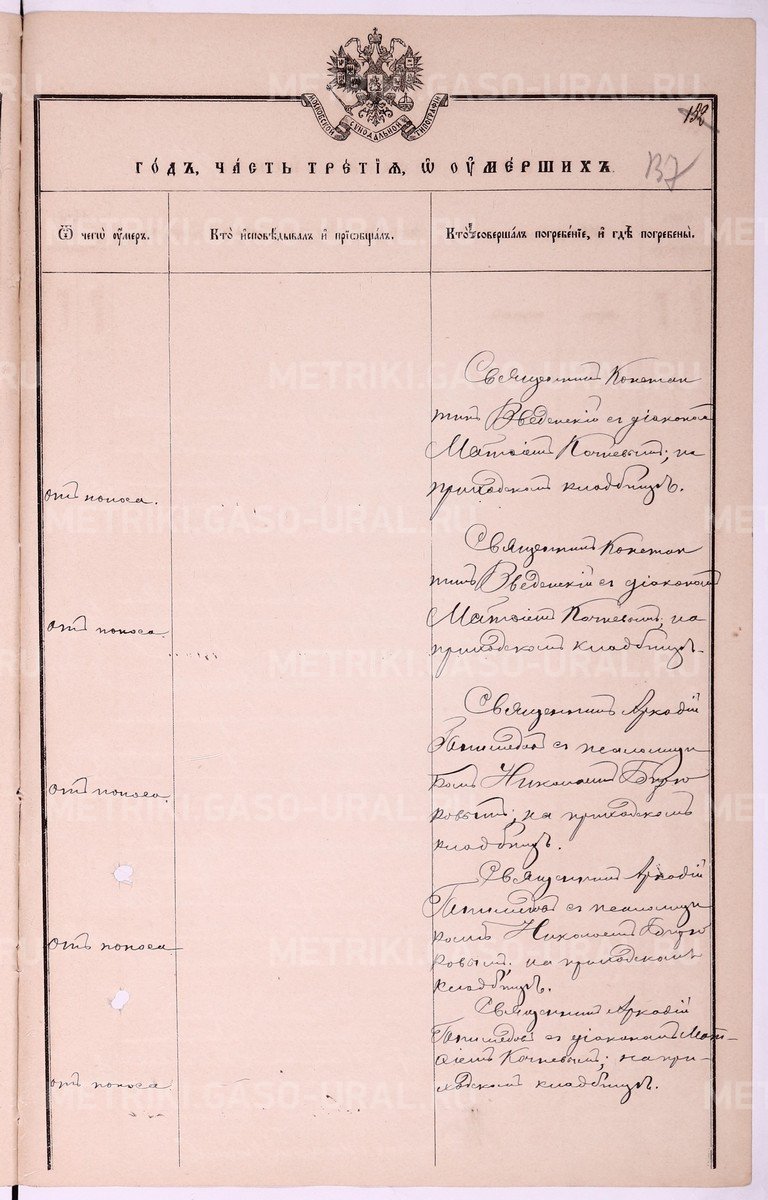 МОСКОВСКОЙ СѴНОДАЛЬНОЙ ТИПОГРАФІИ
132
137
ГОДЪ, ЧАСТЬ ТРЕТІѦ, Ѡ ОУМЕРШИХЪ
Ѿ чегѡ оумеръ.
Кто исповѣдывалъ и пріѡбщалъ.
Кто совершалъ погребеніе, и гдѣ погребены.
Священникъ Констан
тинъ Введенскій съ діакономъ
Матѳіемъ Кочневымъ; на
приходскомъ кладбищѣ.
отъ поноса.
Священникъ Констан
тинъ Введенскій съ діакономъ
Матѳіемъ Кочневымъ; на
приходскомъ кладбищѣ.
отъ поноса.
Священникъ Аркадій
съ псаломщи
комъ Николаемъ Бирю
ковымъ; на приходскомъ
кладбищѣ.
отъ поноса.
Священникъ Аркадій
съ псаломщи
комъ Николаемъ Бирю
ковымъ; на приходскомъ
кладбищѣ.
отъ поноса.
Священникъ Аркадій
съ діакономъ Мат-
ѳіемъ Кочневымъ; на при-
ходскомъ кладбищѣ.
отъ поноса.
METRIKI.GASO-URAL.RU